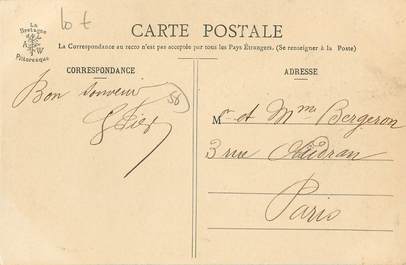 La
Bretagne
A L W
Pittoresque
CARTE POSTALE
La Correspondance au recto n'est pas acceptée par tous les Pays Étrangers. (Se renseigner à la Poste)
CORRESPONDANCE
ADRESSE
Bon souvenir
58
Mr et Mme Bergeron
3 rue Audran
Paris